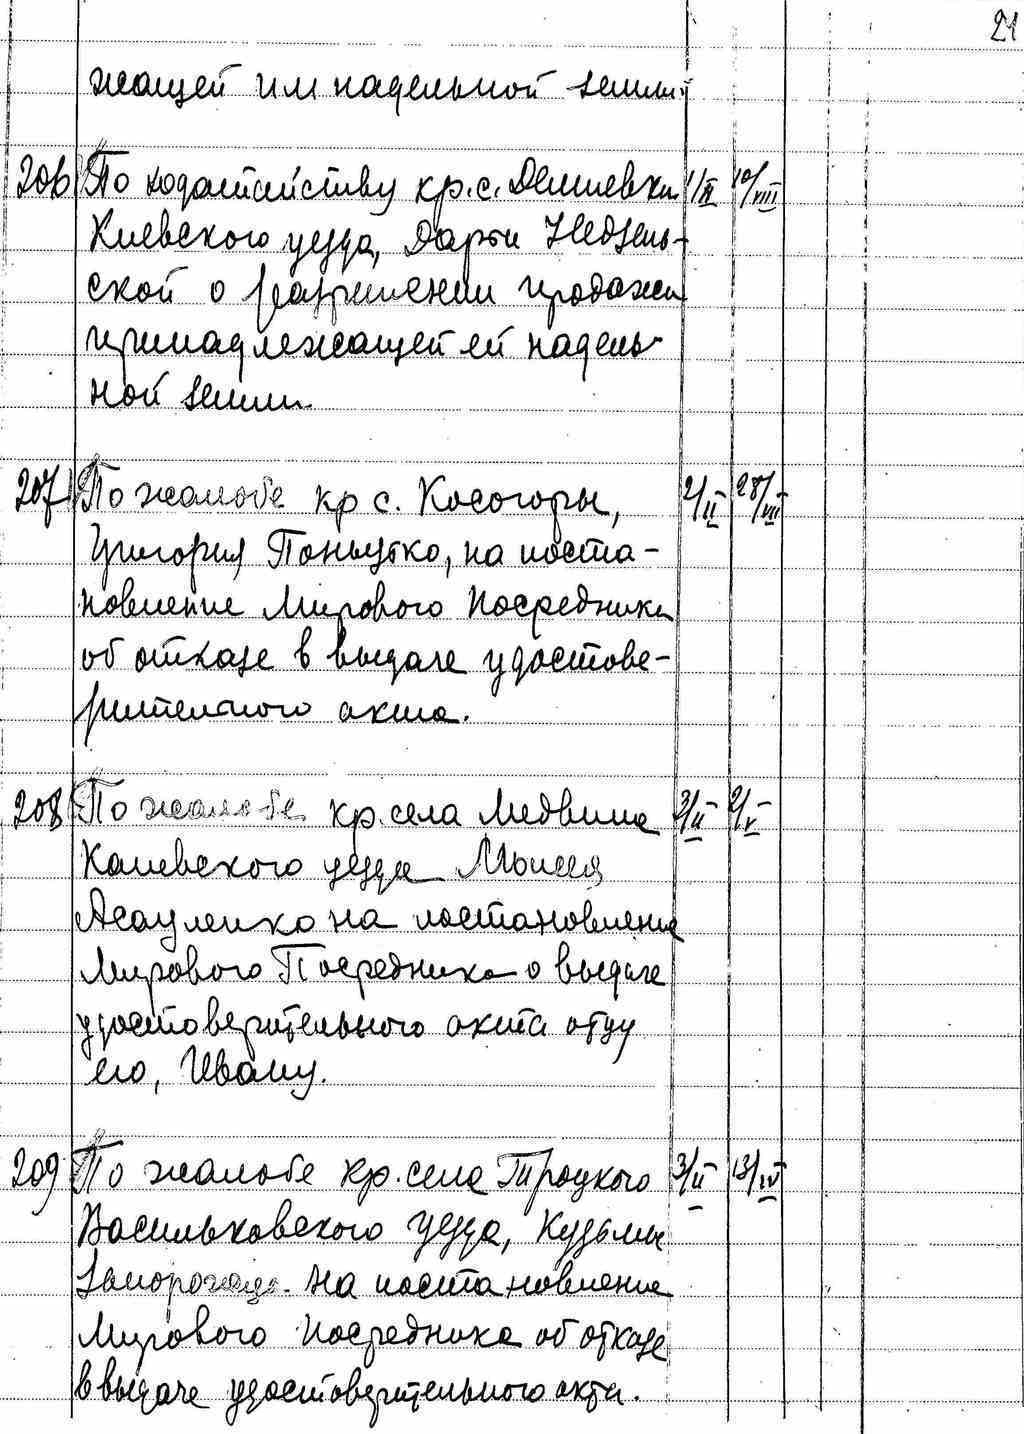 21
жащей им надельной земли
206 По ходатайству кр. с. Демиевки 1/II 10/VIII
Киевского уезда, Дарьи Недзель-
ской о разрешении продажи
принадлежащей ей надель-
ной земли
207 По жалобе кр с. Косогоры, 2/II 28/VII
Григория Поньутко, на поста-
новление Мирового Посредника
об отказе в выдаче удостове-
рительного акта.
208 По жалобе кр. села Медвина 3/II 2/V
Каневского уезда Моисея
Асауленко на постановление
Мирового Посредника о выдаче
удостоверительного акта отцу
его, Ивану.
209 По жалобе кр. села Троцкого 3/II 13/IV
Васильковского уезда, Кузьмы
Запорожца на постановление
Мирового Посредника об отказе
в выдаче удостоверительного акта.